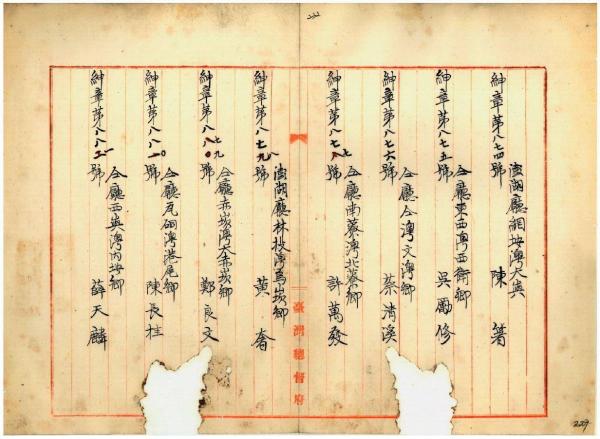 紳章第八七四號
澎湖廳網垵澳大與
陳箸
紳章第八七五號
仝廳東西澳西衛鄉
吳勵修
紳章第八七六號
仝廳仝澳文澳鄉
蔡清溪
紳章第八七八七號
仝廳南寮澳北寮鄉
許萬發
紳章第八七九八號
澎湖廳林投澳烏崁鄉
黃奢
紳章第八八〇七九號
仝廳赤崁澳大赤崁鄉
鄭良文
紳章第八八一〇號
仝廳瓦硐澳港尾鄉
陳長桂
紳章第八八二一號
仝廳西嶼澳內垵鄉
薛天麟
臺灣總督府
229